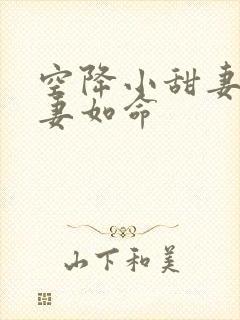 空降小甜妻
妻如命
山下和美